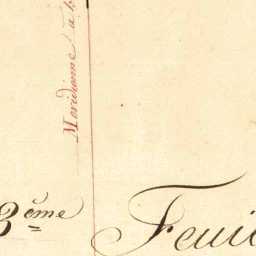 Méridienne à
3ème Feuil